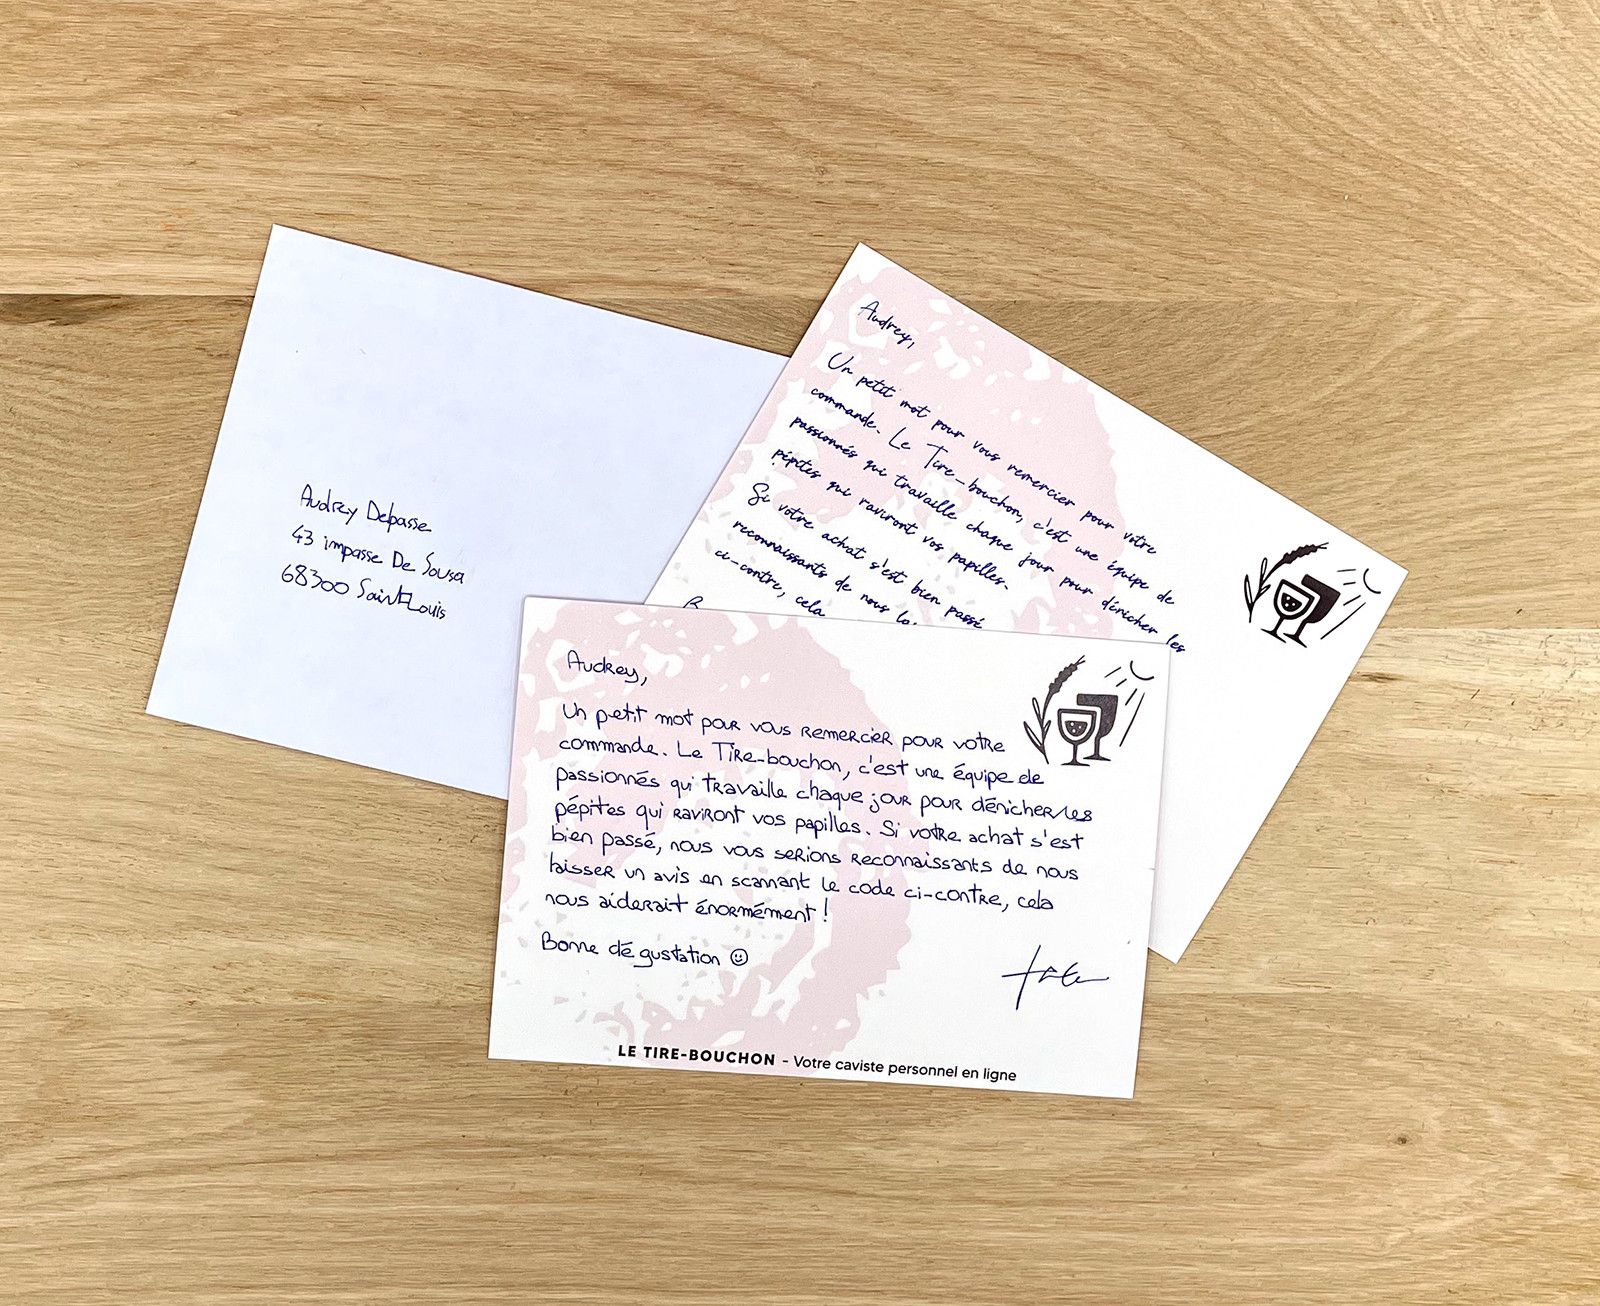 Audrey Delpasse
43 impasse De Sousa
68300 Saint-Louis
Audrey,
Un petit mot pour vous remercier pour votre
commande. Le Tire-bouchon, c'est une équipe de
passionnés qui travaille chaque jour pour dénicher les
pépites qui raviront vos papilles.
Si votre achat s'est bien passé
reconnaissants de nous
ci-contre, cela
Audrey,
Un petit mot pour vous remercier pour votre
commande. Le Tire-bouchon, c'est une équipe de
passionnés qui travaille chaque jour pour dénicher les
pépites qui raviront vos papilles. Si votre achat s'est
bien passé, nous vous serions reconnaissants de nous
laisser un avis en scannant le code ci-contre, cela
nous aiderait énormément !
Bonne dégustation ☺
LE TIRE-BOUCHON - Votre caviste personnel en ligne